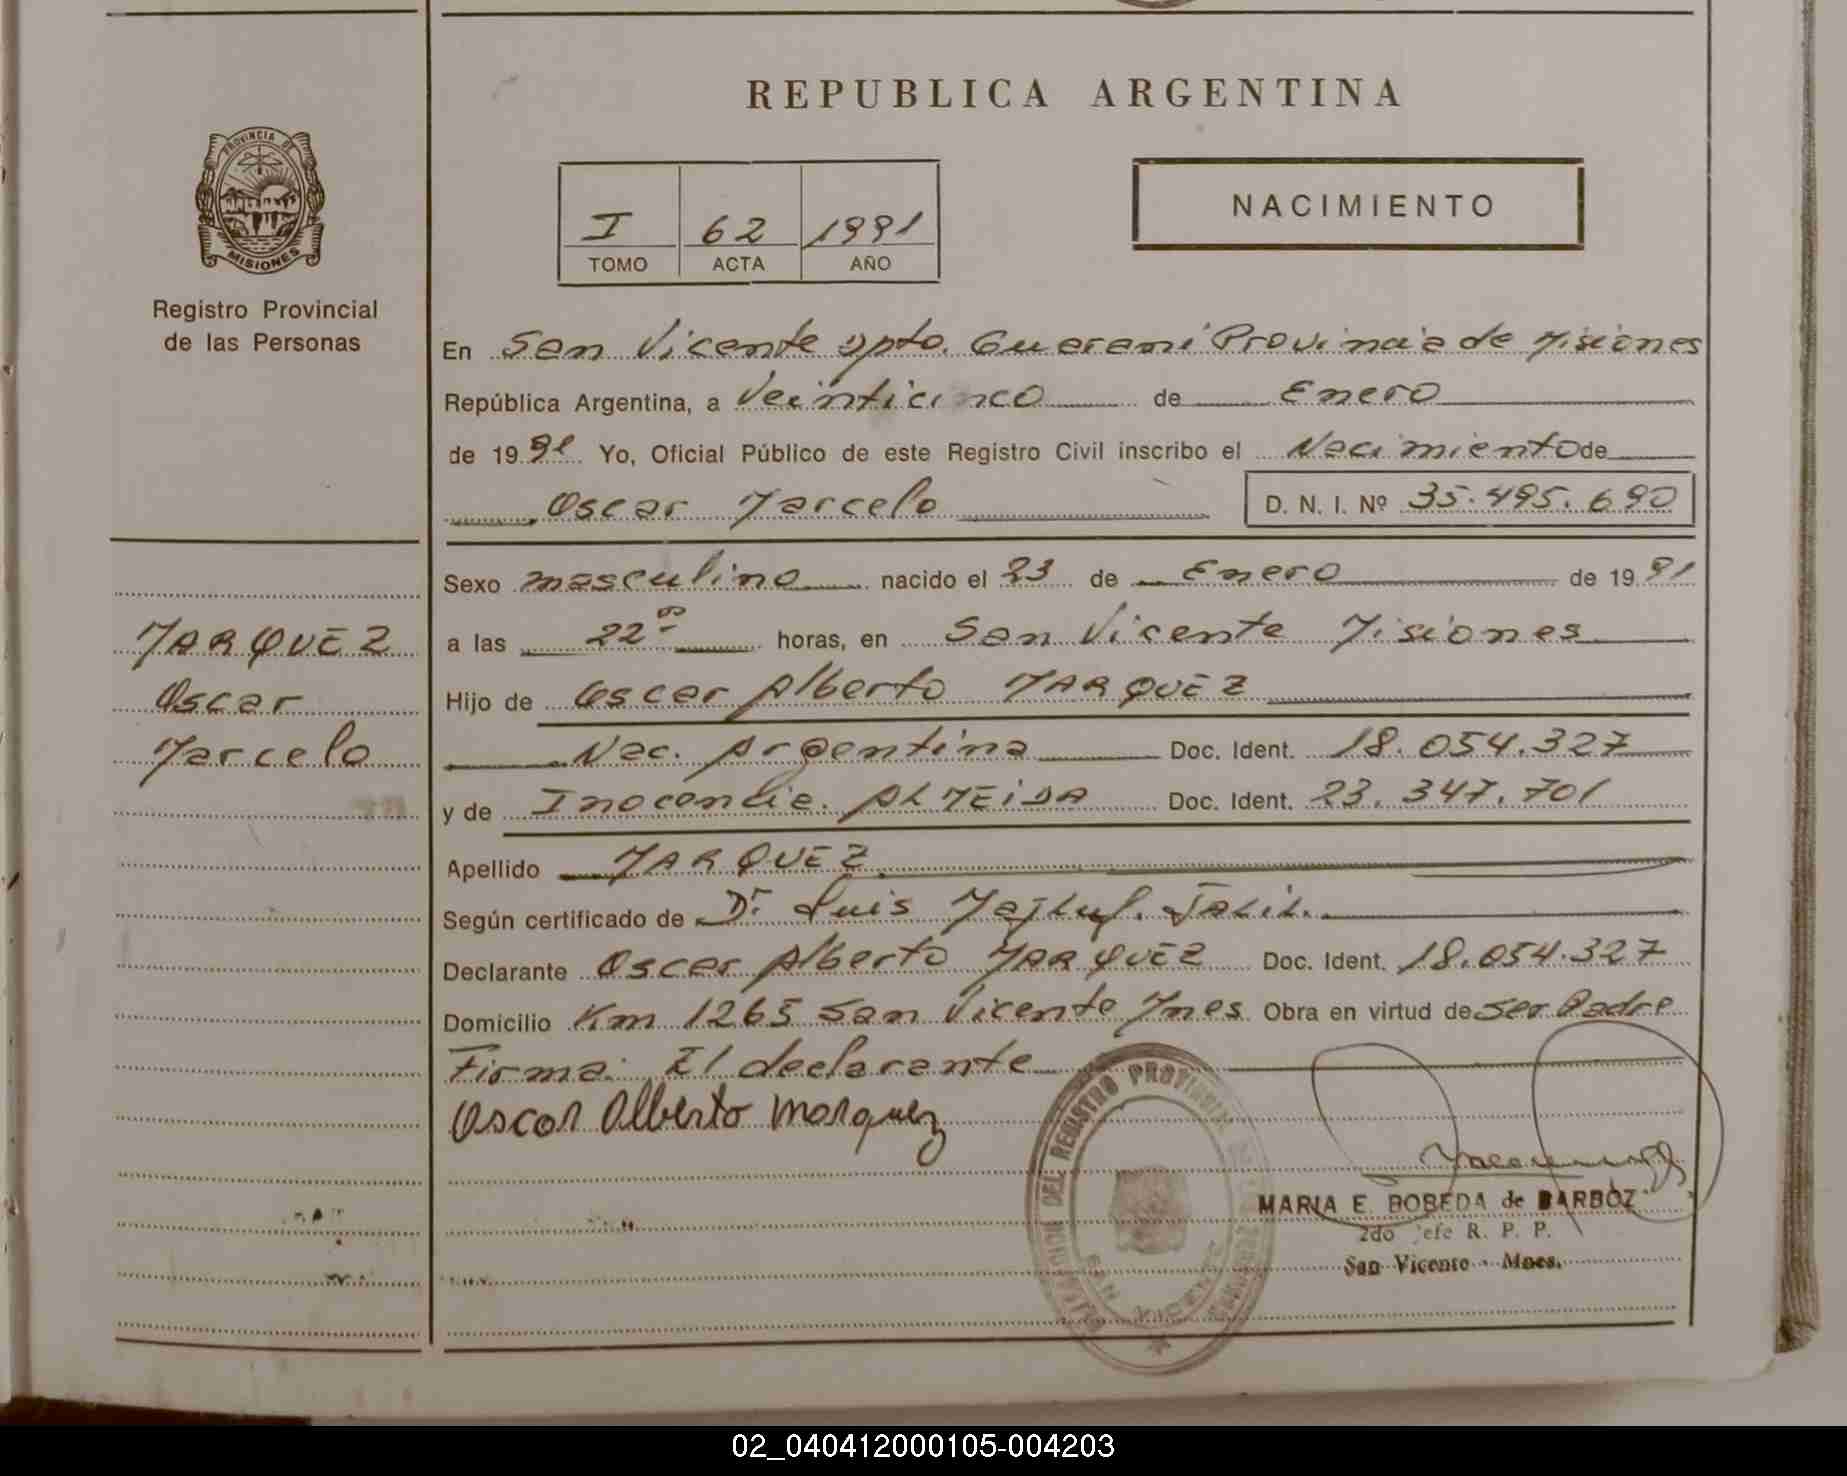 REPUBLICA ARGENTINA
PROVINCIA DE
MISIONES
Registro Provincial
de las Personas
I 62 1991
TOMO ACTA AÑO
NACIMIENTO
En San Vicente Dpto. Guarani Provincia de Misiones
República Argentina, a Veinticinco de Enero
de 1991 Yo, Oficial Público de este Registro Civil inscribo el Nacimiento de
Oscar Marcelo D. N. I. Nº 35.495.690
Sexo masculino nacido el 23 de Enero de 1991
a las 22 hs horas, en San Vicente Misiones
Hijo de Oscar Alberto MARQUEZ
Nac. Argentina Doc. Ident. 18.054.327
y de Inocencia ALMEIDA Doc. Ident. 23.347.701
Apellido MARQUEZ
Según certificado de Dr Luis JALIL.
Declarante Oscar Alberto MARQUEZ Doc. Ident. 18.054.327
Domicilio Km 1265 San Vicente Mnes. Obra en virtud de ser Padre
Firma: El declarante
Oscar Alberto Marquez
MARQUEZ
Oscar
Marcelo
DEL REGISTRO PROVINCIAL
SAN VICENTE
MARIA E. BOBEDA de BARBOZ
2do Jefe R. P. P.
San Vicente - Mnes.
02_040412000105-004203